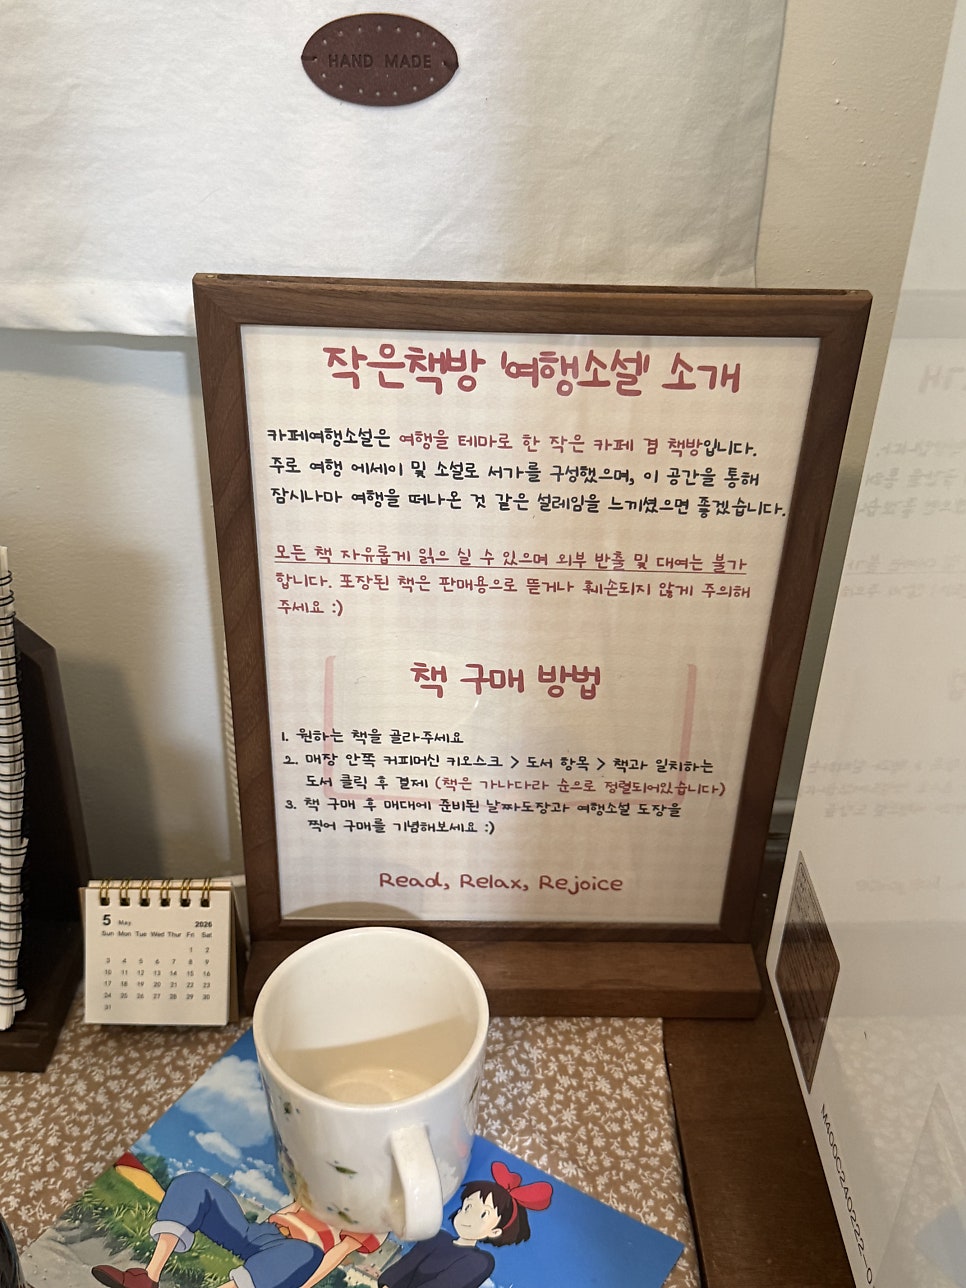 HAND MADE
작은책방 '여행소설' 소개
카페여행소설은 여행을 테마로 한 작은 카페 겸 책방입니다.
주로 여행 에세이 및 소설로 서가를 구성했으며, 이 공간을 통해
잠시나마 여행을 떠나온 것 같은 설레임을 느끼셨으면 좋겠습니다.
모든 책 자유롭게 읽으실 수 있으며 외부 반출 및 대여는 불가
합니다. 포장된 책은 판매용으로 뜯거나 훼손되지 않게 주의해
주세요 :)
책 구매 방법
1. 원하는 책을 골라주세요
2. 매장 안쪽 커피머신 키오스크 > 도서 항목 > 책과 일치하는
도서 클릭 후 결제 (책은 가나다라 순으로 정렬되어있습니다)
3. 책 구매 후 매대에 준비된 날짜도장과 여행소설 도장을
찍어 구매를 기념해보세요 :)
Read, Relax, Rejoice
5 May 2026
Sun Mon Tue Wed Thur Fri Sat
1 2
3 4 5 6 7 8 9
10 11 12 13 14 15 16
17 18 19 20 21 22 23
24 25 26 27 28 29 30
31